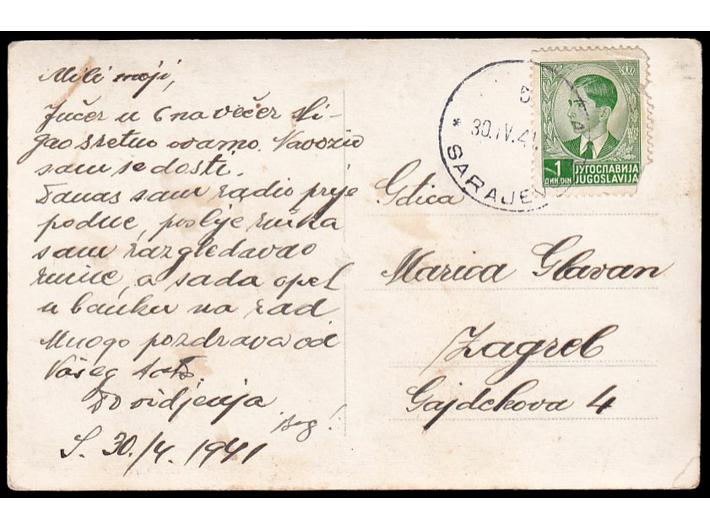 Mili moji,
Jučer u 6 navečer sti-
gao sretno ovamo. Navozio
sam se dosti.
Danas sam radio prije
podne, poslije ručka
sam razgledavao
ruine, a sada opet
u banku na rad
Mnogo pozdrava od
Vašeg tate
Do vidjenja
bog!
S. 30./4. 1941
30.IV.41
* SARAJEVO
1 ЈУГОСЛАВИЈА
ДИН. DIN JUGOSLAVIJA
Gdica
Marica Glavan
Zagreb
Gajdekova 4